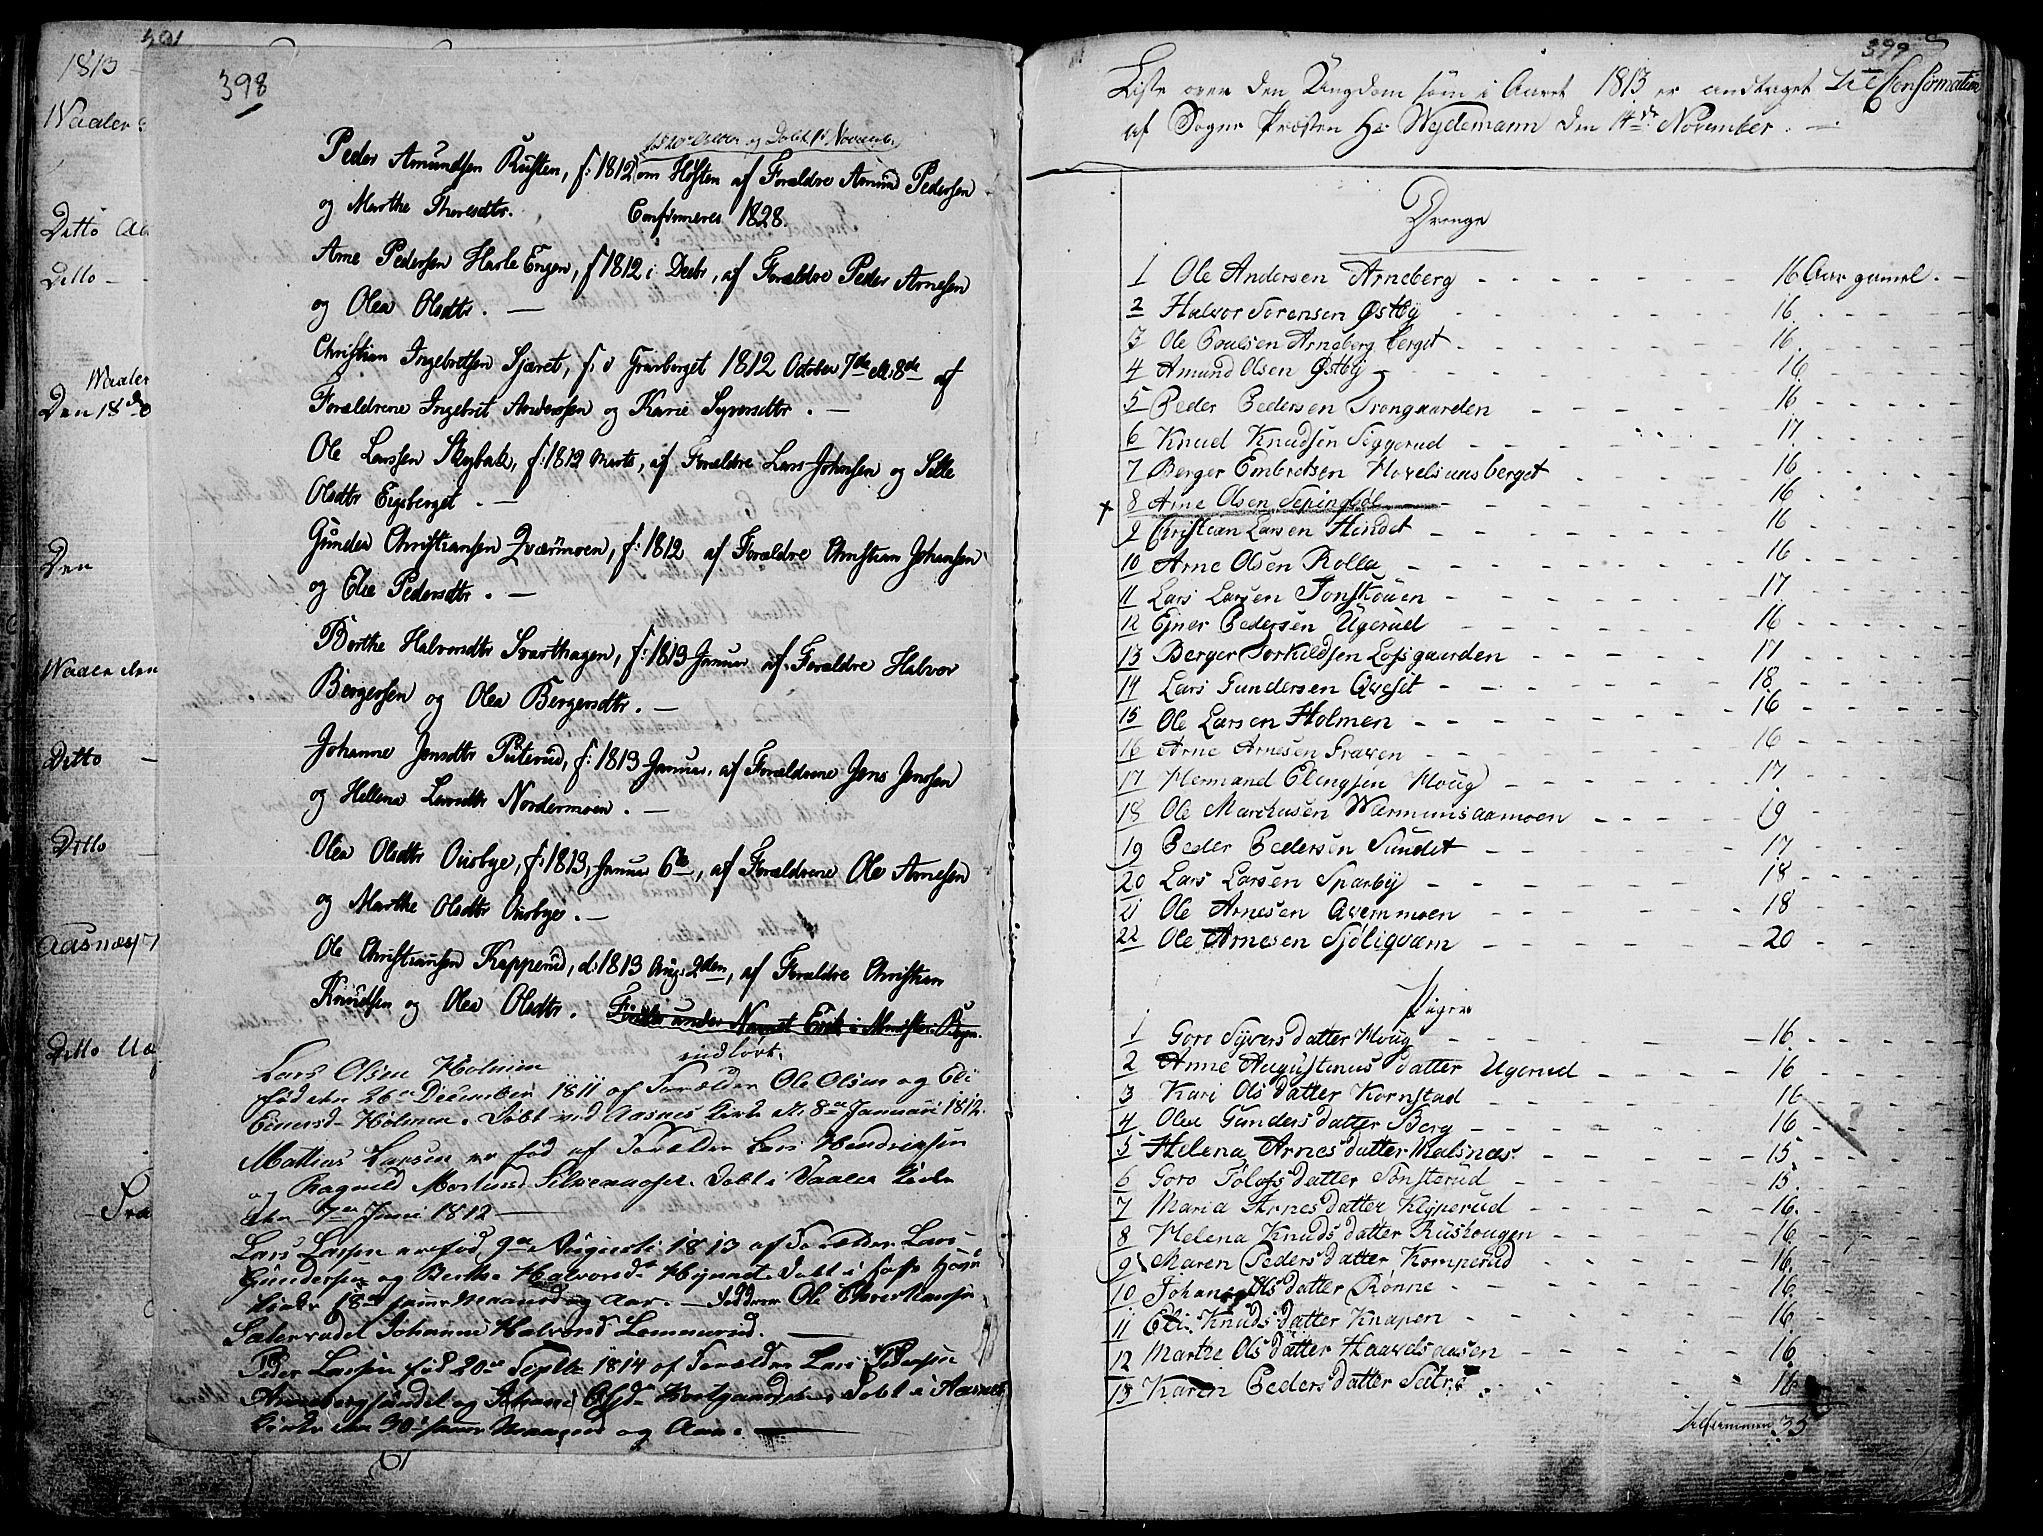 501
1813
Waaler
Ditto Aa
Ditto
Waaler
Den 18de
Den
Waaler den
Ditto
Ditto
Aasnæs
Ditto
398
født 20 October og Døbt 1ste Novembr
Peder Amundsen Rusten, f: 1812 om Høsten af Forældre Amund Pedersen
og Marthe Thoresdtr. Confirmeres 1828.
Arne Pedersen Harle Engen, f 1812 i Decbr, af Forældre Peder Arnesen
og Olea Olsdtr. —
Christian Ingebretsen Sjæret, f. i Grasberget 1812 October 7de el. 8de af
Forældrene Ingebret Anderssen og Karie Syversdtr. —
Ole Larssen Skybak, f: 1812 Marts, af Forældre Lars Johnsen og Sille
Olsdtr Eigsberget. —
Gunder Christiansen Qværnmoen, f: 1812 af Forældre Christian Johansen
og Elie Pedersdtr. —
Berthe Halvorsdtr Svarthagen, f: 1813 Januar af Forældre Halvor
Bergersen og Olea Bergersdtr. —
Johanne Jensdtr Puterud, f: 1813 Januar. af Forældrene Jens Jenssen
og Hellena Larsdtr Nordermoen. —
Olea Olsdtr Ousbye, f: 1813, Januar 6te, af Forældrene Ole Arnesen
og Marthe Olsdtr Ousbye. —
Ole Christiansen Kapperud, d: 1813 Aug: 2den, af Forældre Christian
Knudsen og Olea Olsdtr. Findes under Navnet Erik i Minister. Bogen.
indført.
Lars Olsen Holmen
født den 26de December 1811 af Forælder Ole Olsen og Eli
Einersd- Holmen. Døbt ved Aasnes Kirke d. 8de Januari 1812.
Mathias Larsen er fød af Forælder Lars Hendrichsen
og Ragnild Mortensd Døbt i Vaaler Kirke
den 7de Juni 1812 —
Lars Larsen er fød 9de Augusti 1813 af Forælder Lars
Gundersen og Berthe Halvorsdt Døbt i Hof
Kirke 18de samme Maaned og Aar. — Fadderne Ole Christiansen
Johanne Halvorsd
Peder Larsen fød 20de Septbr 1814 af Forælder Lars Pedersen
Arnebergsundet og Johanne Olsd Døbt i Aasnes
Kirke den 30te samme Maaned og Aar. —
399
Liste over den Ungdom som i Aaret 1813 er andtaget til Confirmation
af Sogne Præsten Hr Wejdemann den 14de November. —
Drenge
1 Ole Andersen Arneberg - - - 16 Aar gamel.
2 Halvor Sorensen Østby - - - 16
3 Ole Poulsen Arneberg berget - - - 16
4 Amund Olsen Østby - - - 16
5 Peder Pedersen Trongaarden - - - 16
6 Knud Knudsen Siggerud - - - 17
7 Berger Embretsen Hovelsaasberget 16
+ 8 Arne Olsen - - - 16
9 Christian Larsen Hundet - - - 16
10 Arne Olsen Rolla - - - 16
11 Lars Larsen Tonskouen - - - 17
12 Ejner Pedersen Ugerud - - - 16
13 Berger Torkildsen Lofsgaarden - - - 17
14 Lars Gundersen Qveset - - - 18
15 Ole Larsen Holmen - - - 16
16 Arne Arnesen Graven - - - 16
17 Hermand Elingsen Houg - - - 17
18 Ole Marchusen Warmunsaamoen - - - 19
19 Peder Pedersen Sundet - - - 17
20 Lars Larsen Sparby - - - 18
21 Ole Arnesen Qvernmoen - - - 18
22 Ole Arnesen Sjøliqværn - - - 20
Piger
1 Goro Syvers datter Houg - - - 16
2 Anne Augustinus datter Ugerud - - - 16
3 Kari Ols datter Kornstad - - - 16
4 Olea Gunders datter Berg - - - 16
5 Helena Arnes datter Malsnæs - - - 15
6 Goro Tolofs datter Tonsterud - - - 15
7 Maria Arnes datter Klyperud - - - 16
8 Helena Knuds datter Rushougen - - - 16
9 Maren Peders datter Komperud - - - 16
10 Johana Ols datter Rønne - - - 16
11 Eli Knuds datter Knapen - - - 16
12 Marthe Ols datter Haavelsaasen - - - 16
13 Karen Peders datter Sætre - - - 16
Tilsammen 35